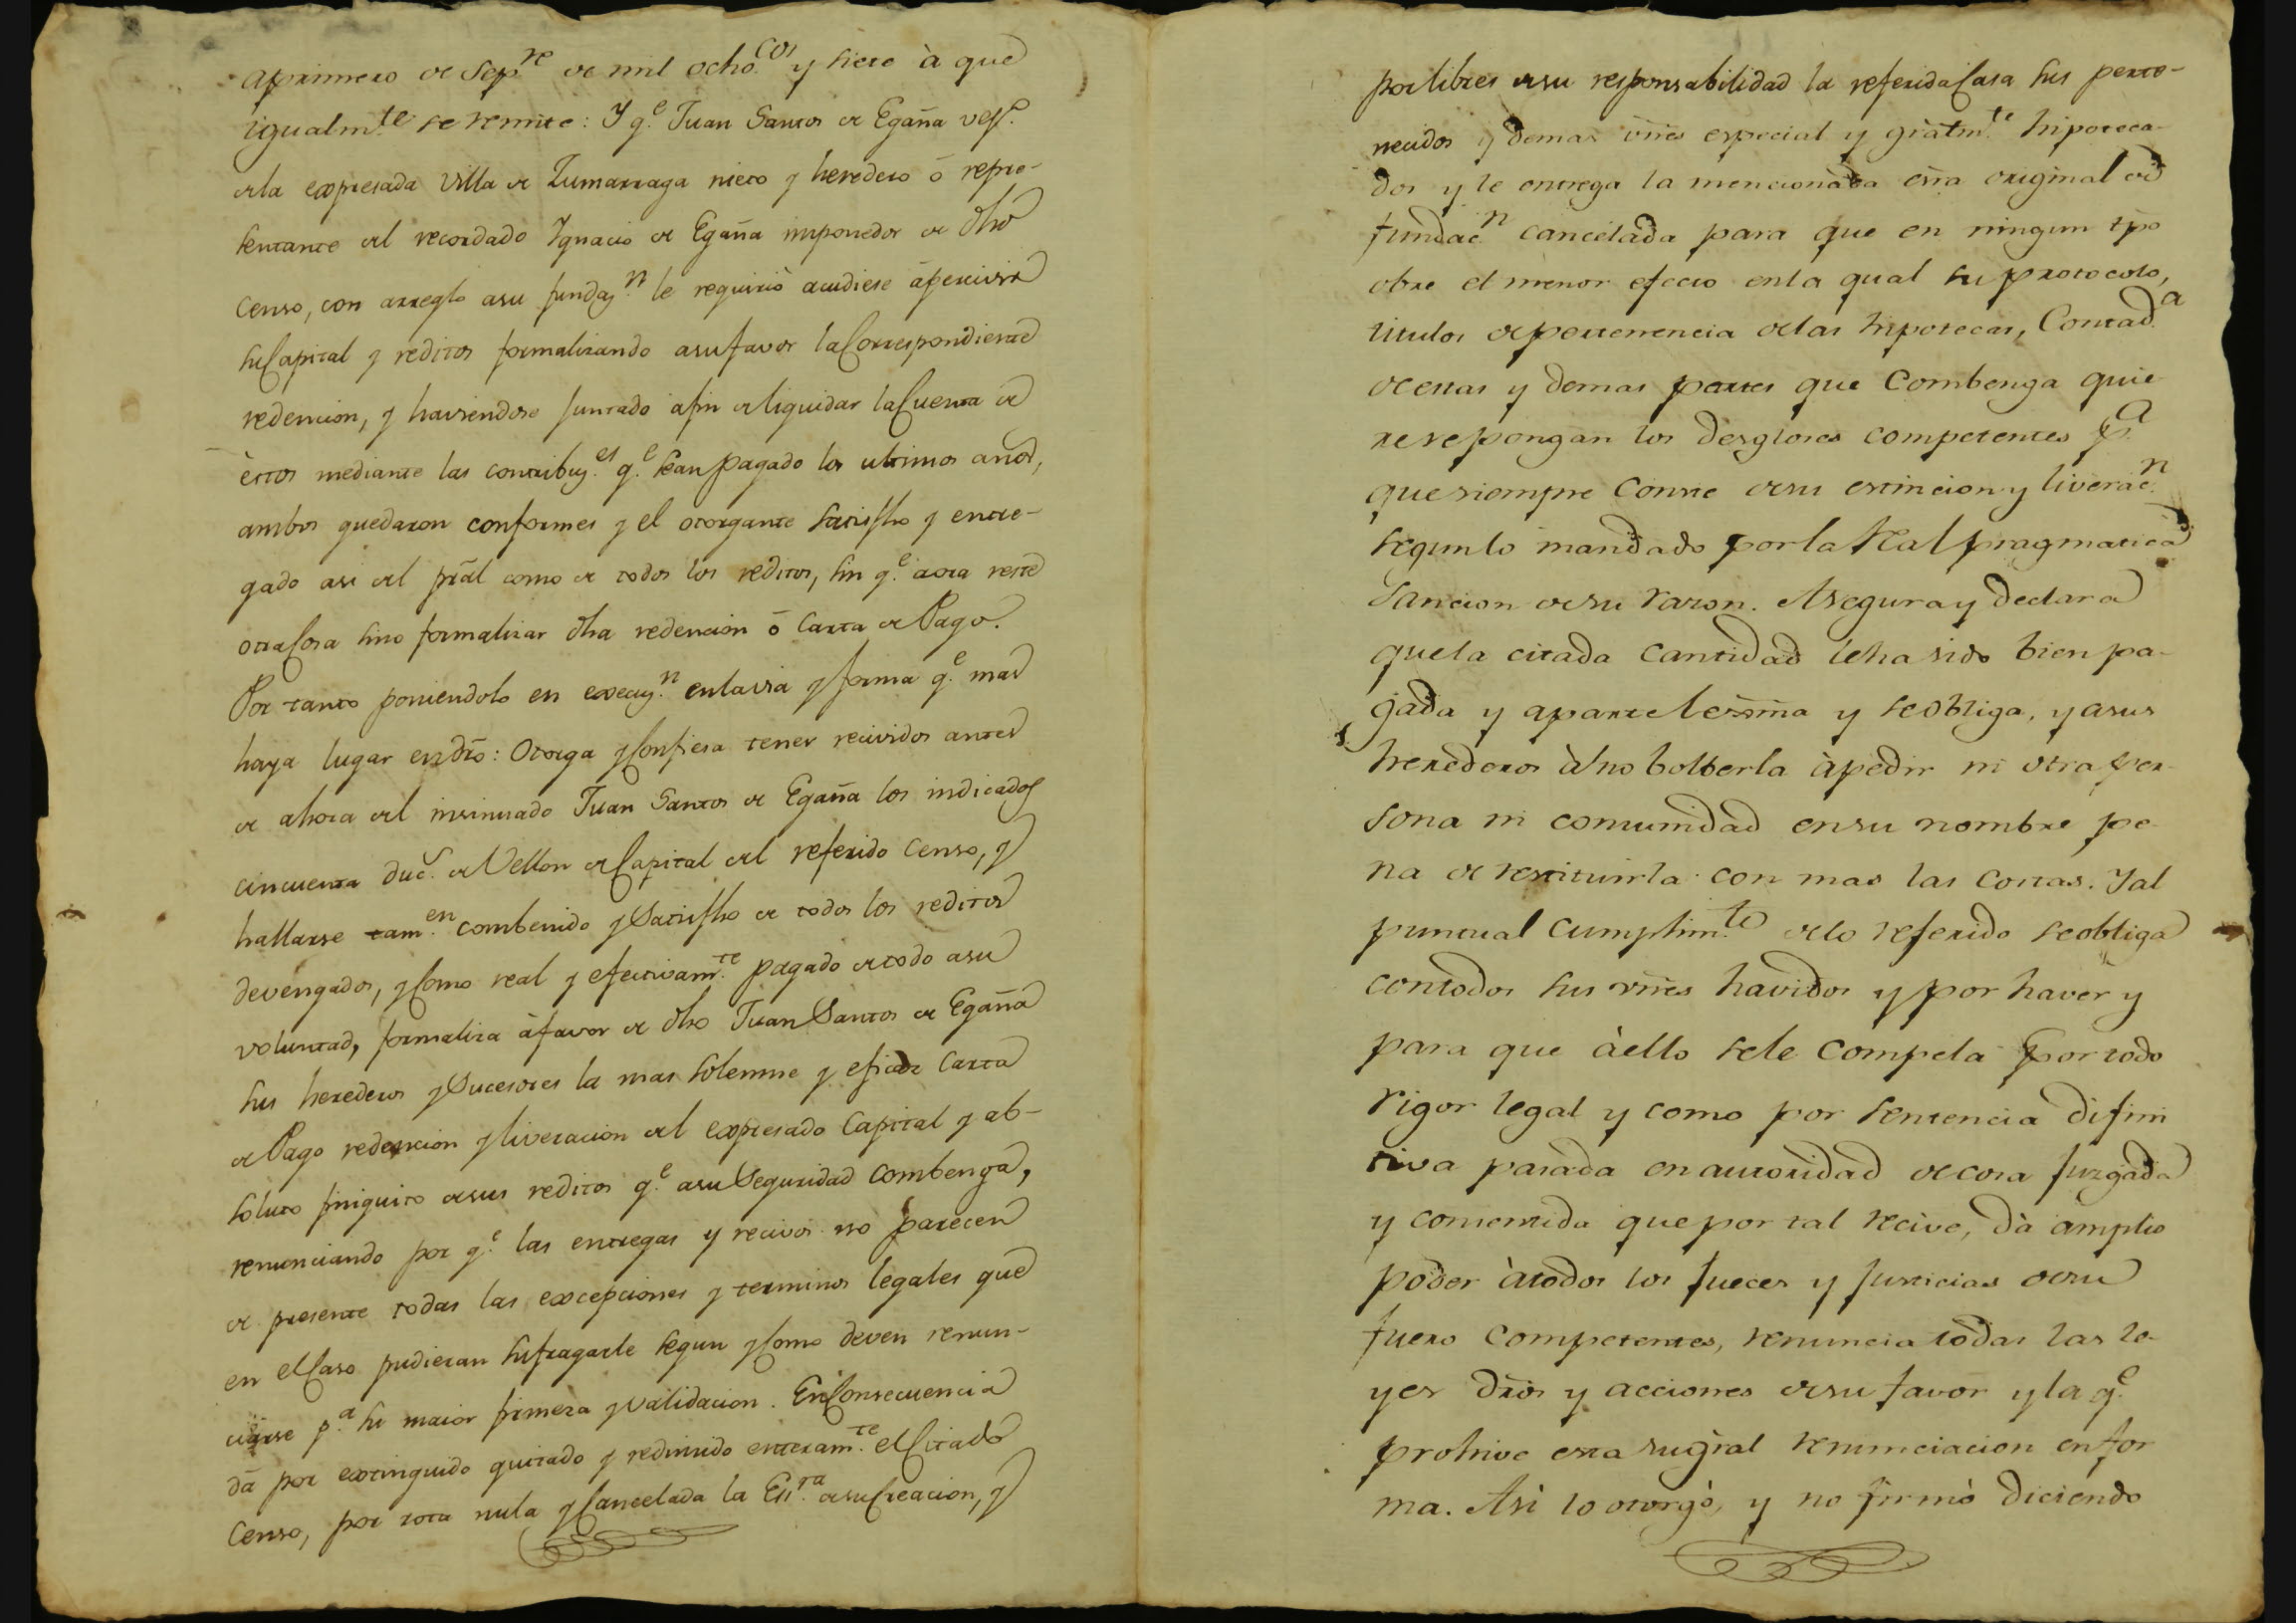 aprimero de Sep.re de mil ocho.cos y siete à que
igualm.te se remite: Y q.e Juan Santos de Egaña vez.o
dela expresada Villa de Zumarraga nieto y heredero ó repre-
sentante del recordado Ygnacio de Egaña imponedor de dho
Censo, con arreglo asu fundaz.n le requirió acudiese ápercivir
su Capital y reditos formalizando asufavor la Correspondiente
redencion, y haviendose juntado áfin de liquidar la Cuenta de
èstos mediante las contribuz.es q.e sean pagado los ultimos años,
ambos quedaron conformes y el otorgante satisfho y entre-
gado asi del prãl como de todos los reditos, sin q.e áora reste
otra Cosa sino formalizar dha redencion ó Carta de Pago.
Por tanto poniendolo en execuz.n enlavia y forma q.e mas
haya lugar endro: Otorga y Confiesa tener recividos antes
de ahora del insinuado Juan Santos de Egaña los indicados
cincuenta duc.s de Vellon de Capital del referido Censo, y
hallarse tam.en combenido y Satisfho de todos los reditos
devengados, y Como real y efectivam.te pagado de todo asu
voluntad, formaliza àfavor de dho Juan Santos de Egaña
sus herederos y Sucesores la mas solemne y eficaz Carta
de Pago redencion y liveracion del expresado Capital y ab-
soluto finiquito desus reditos q.e asu Seguridad combenga,
renunciando por q.e las entregas y recivos no parecen
de presente todas las excepciones y terminos legales que
en el Caso pudieran sufragarle segun y Como deven renun-
ciarse p.a su maior firmeza y validacion. En Consecuencia
dá por extinguido quitado y redimido enteram.te el Citado
Censo, por rota nula y Cancelada la Esc.ra desu Creacion, y
por libres desu responsabilidad la referida Casa sus perte-
necidos y demas vñes especial y gràlm.te hipoteca-
dos y le entrega la mencionada esñra original de
fundac.n cancelada para que en ningun tpo
obre el menor efecto enla qual su protocolo,
titulos de pertenencia delas hipotecas, Contad.a
de estas y demas partes que Combenga quie-
re se pongan los desgloses competentes p.a
que siempre Conste desu extincion y liverac.n
segun lo mandado por la Real pragmatica
Sancion desu razon. Asegura y declara
quela citada Cantidad leha sido bien pa-
gada y aparte lexma y se obliga, y asus
herederos à no bolberla àpedir ni otra per-
sona ni comunidad ensu nombre pe-
na de restituirla con mas las costas. Y al
puntual Cumplim.to delo referido se obliga
contodos sus vñes havidos y por haver y
para que àello sele compela por todo
rigor legal y como por sentencia difini
tiva pasada en autoridad de cosa juzgada
y consentida que por tal recive, dà amplio
poder àtodos los Jueces y Justicias desu
fuero Competentes, renuncia todas las le-
yes dros y acciones desu favor y la q.e
prohive esta sugral renunciacion enfor
ma. Asi lo otorgò, y no firmò diciendo